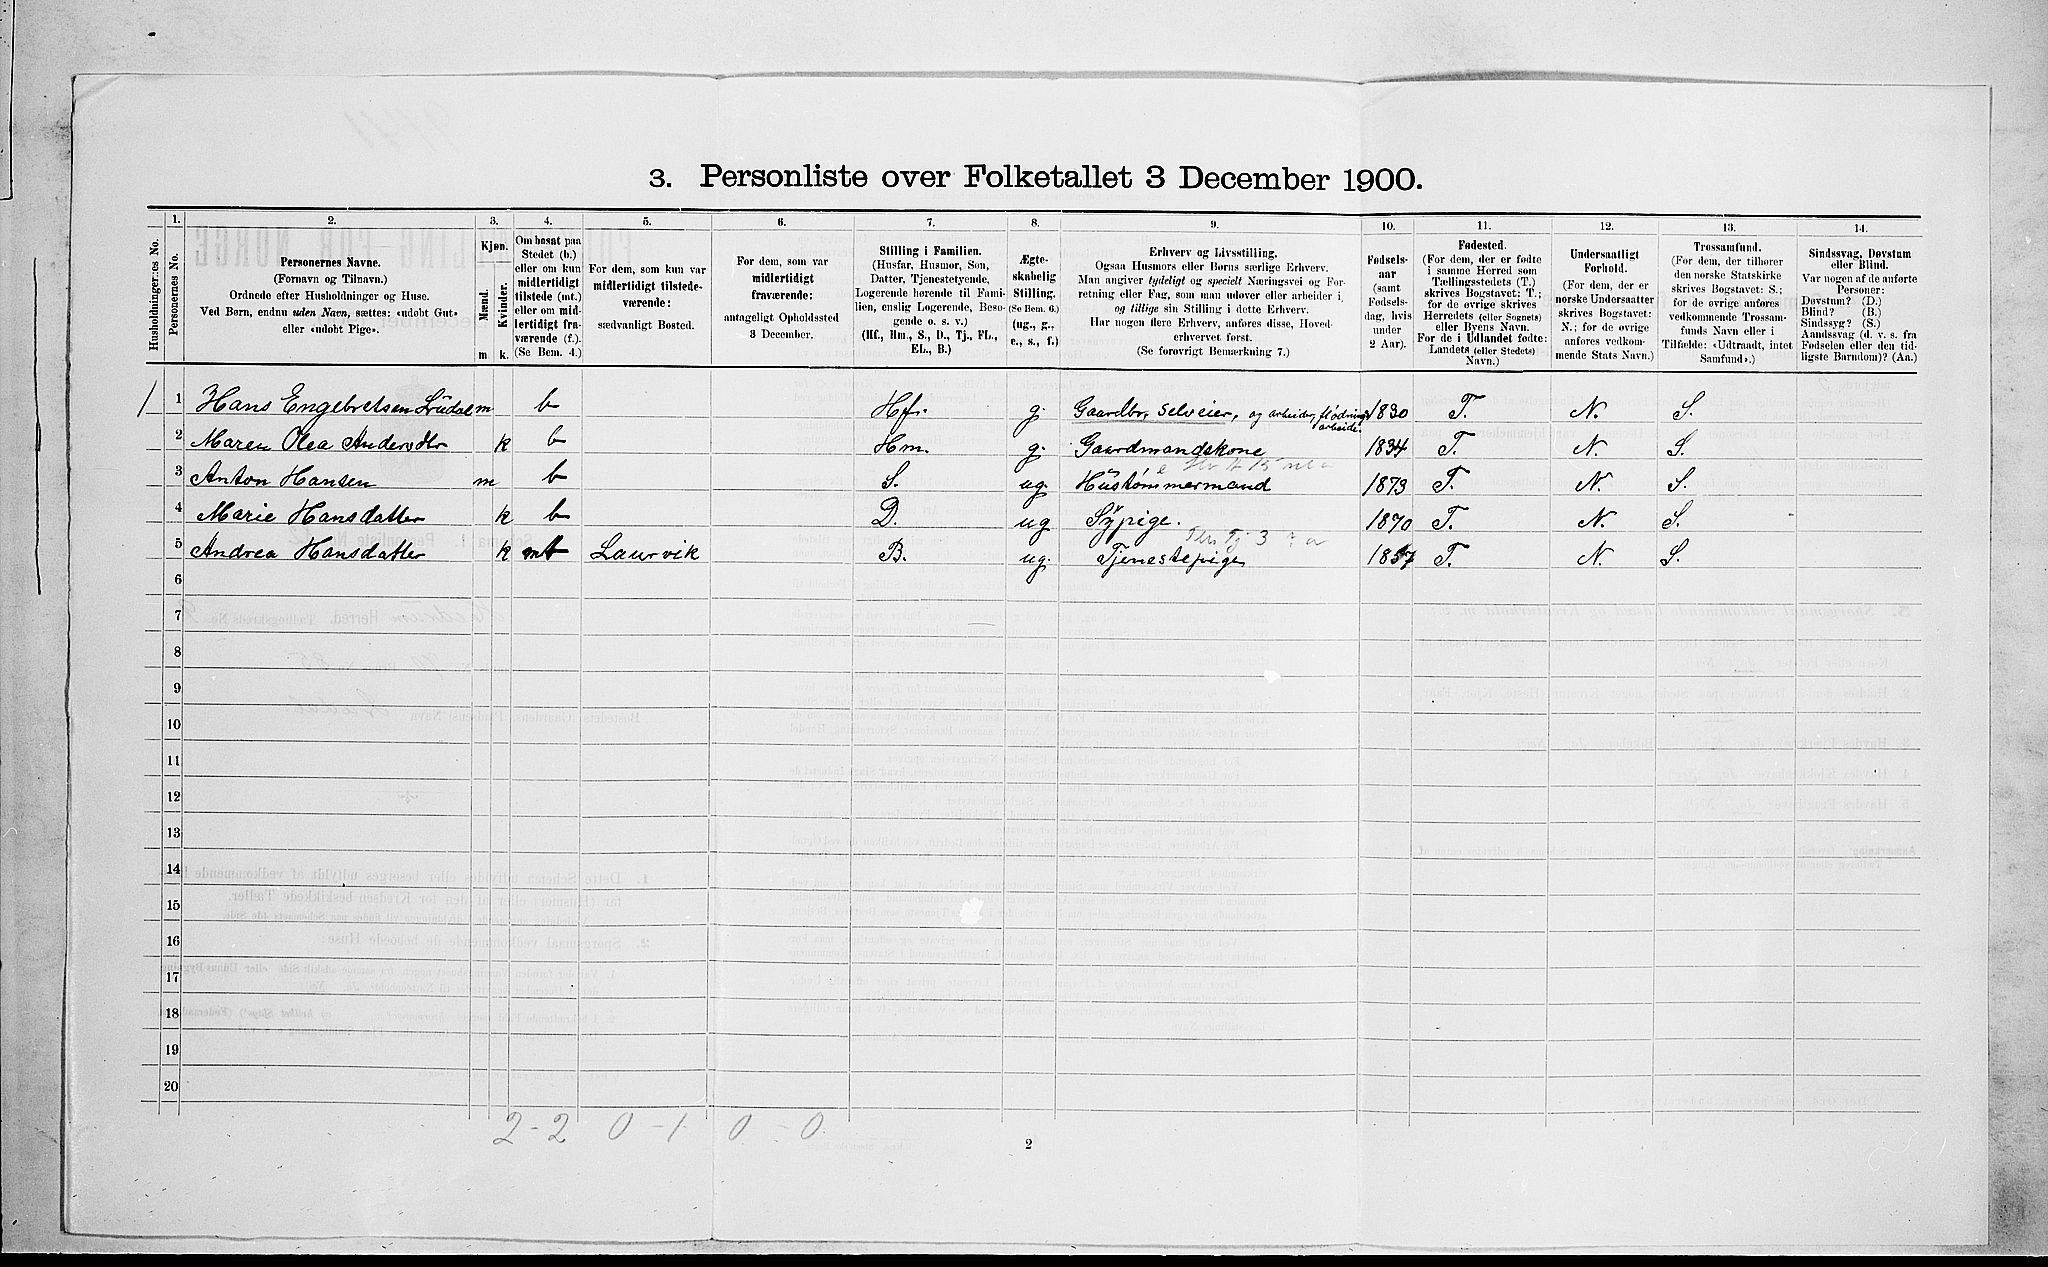 3. Personliste over Folketallet 3 December 1900.
1. 2. 3. 4. 5. 6. 7. 8. 9. 10. 11. 12. 13. 14.
Husholdningernes No.
Personernes No.
Personernes Navne.
(Fornavn og Tilnavn.)
Ordnede efter Husholdninger og Huse.
Ved Børn, endnu uden Navn, sættes: «udøbt Gut»
eller «udøbt Pige».
Kjøn.
Mænd.
Kvinder.
m. k.
Om bosat paa
Stedet (b.)
eller om kun
midlertidigt
tilstede (mt.)
eller om mid-
lertidigt fra-
værende (f.).
(Se Bem. 4.)
For dem, som kun var
midlertidigt tilstede-
værende:
sædvanligt Bosted.
For dem, som var
midlertidigt
fraværende:
antageligt Opholdssted
3 December.
Stilling i Familien.
(Husfar, Husmor, Søn,
Datter, Tjenestetyende,
Logerende hørende til Fami-
lien, enslig Logerende, Besø-
gende o. s. v.)
(Hf., Hm., S., D., Tj., FL.,
EL., B.)
Ægte-
skabelig
Stilling.
(Se Bem. 6.)
(ug., g.,
e., s., f.)
Erhverv og Livsstilling.
Ogsaa Husmors eller Børns særlige Erhverv.
Man angiver tydeligt og specielt Næringsvei og For-
retning eller Fag, som man udøver eller arbeider i,
og tillige sin Stilling i dette Erhverv.
Har nogen flere Erhverv, anføres disse, Hoved-
erhvervet først.
(Se forøvrigt Bemerkning 7.)
Fødsels-
aar
(samt
Fødsels-
dag, hvis
under
2 Aar).
Fødested.
(For dem, der er fødte
i samme Herred som
Tællingsstedets (T.)
skrives Bogstavet: T.;
for de øvrige skrives
Herredets (eller Sognets)
eller Byens Navn.
For de i Udlandet fødte:
Landets (eller Stedets)
Navn.)
Undersaatligt
Forhold.
(For dem, der er
norske Undersaatter
skrives Bogstavet:
N.; for de øvrige
anføres vedkom-
mende Stats Navn.)
Trossamfund.
(For dem, der tilhører
den norske Statskirke
skrives Bogstavet: S.;
for de øvrige anføres
vedkommende Trossam-
funds Navn eller i
Tilfælde: «Udtraadt, intet
Samfund».)
Sindssvag, Døvstum
eller Blind.
Var nogen af de anførte
Personer:
Døvstum? (D.)
Blind? (B.)
Sindssyg? (S.)
Aandssvag (d. v. s. fra
Fødselen eller den tid-
ligste Barndom)? (Aa.)
1 1 Hans Engebretsen m b Hf. g. Gaardbr, selveier, og arbeider, flødnings arbeide. 1830 T. N. S.
2 Maren Olea Andersdtr k b Hm. g. Gaardmandskone 1834 T. N. S.
3 Anton Hansen m b S. ug. Hustømmermand 1873 T. N. S.
4 Marie Hansdatter k b D. ug Sypige. 1870 T. N. S.
5 Andrea Hansdatter k mt Laurvik B. ug. Tjenestepige 1857 T. N. S.
6
7
8
9
10
11
12
13
14
15
16
17
18
19
20
2 - 2 0 - 1 0 - 0
2